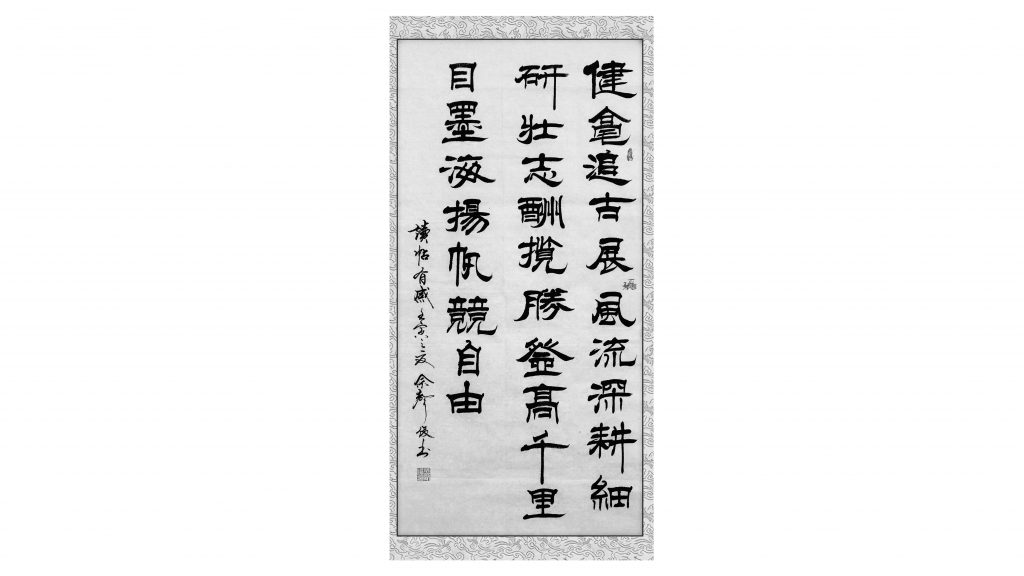 健毫追古展風流深耕細
研壯志酬攬勝登高千里
目墨海揚帆競自由
讀帖有感壬寅之夏余書